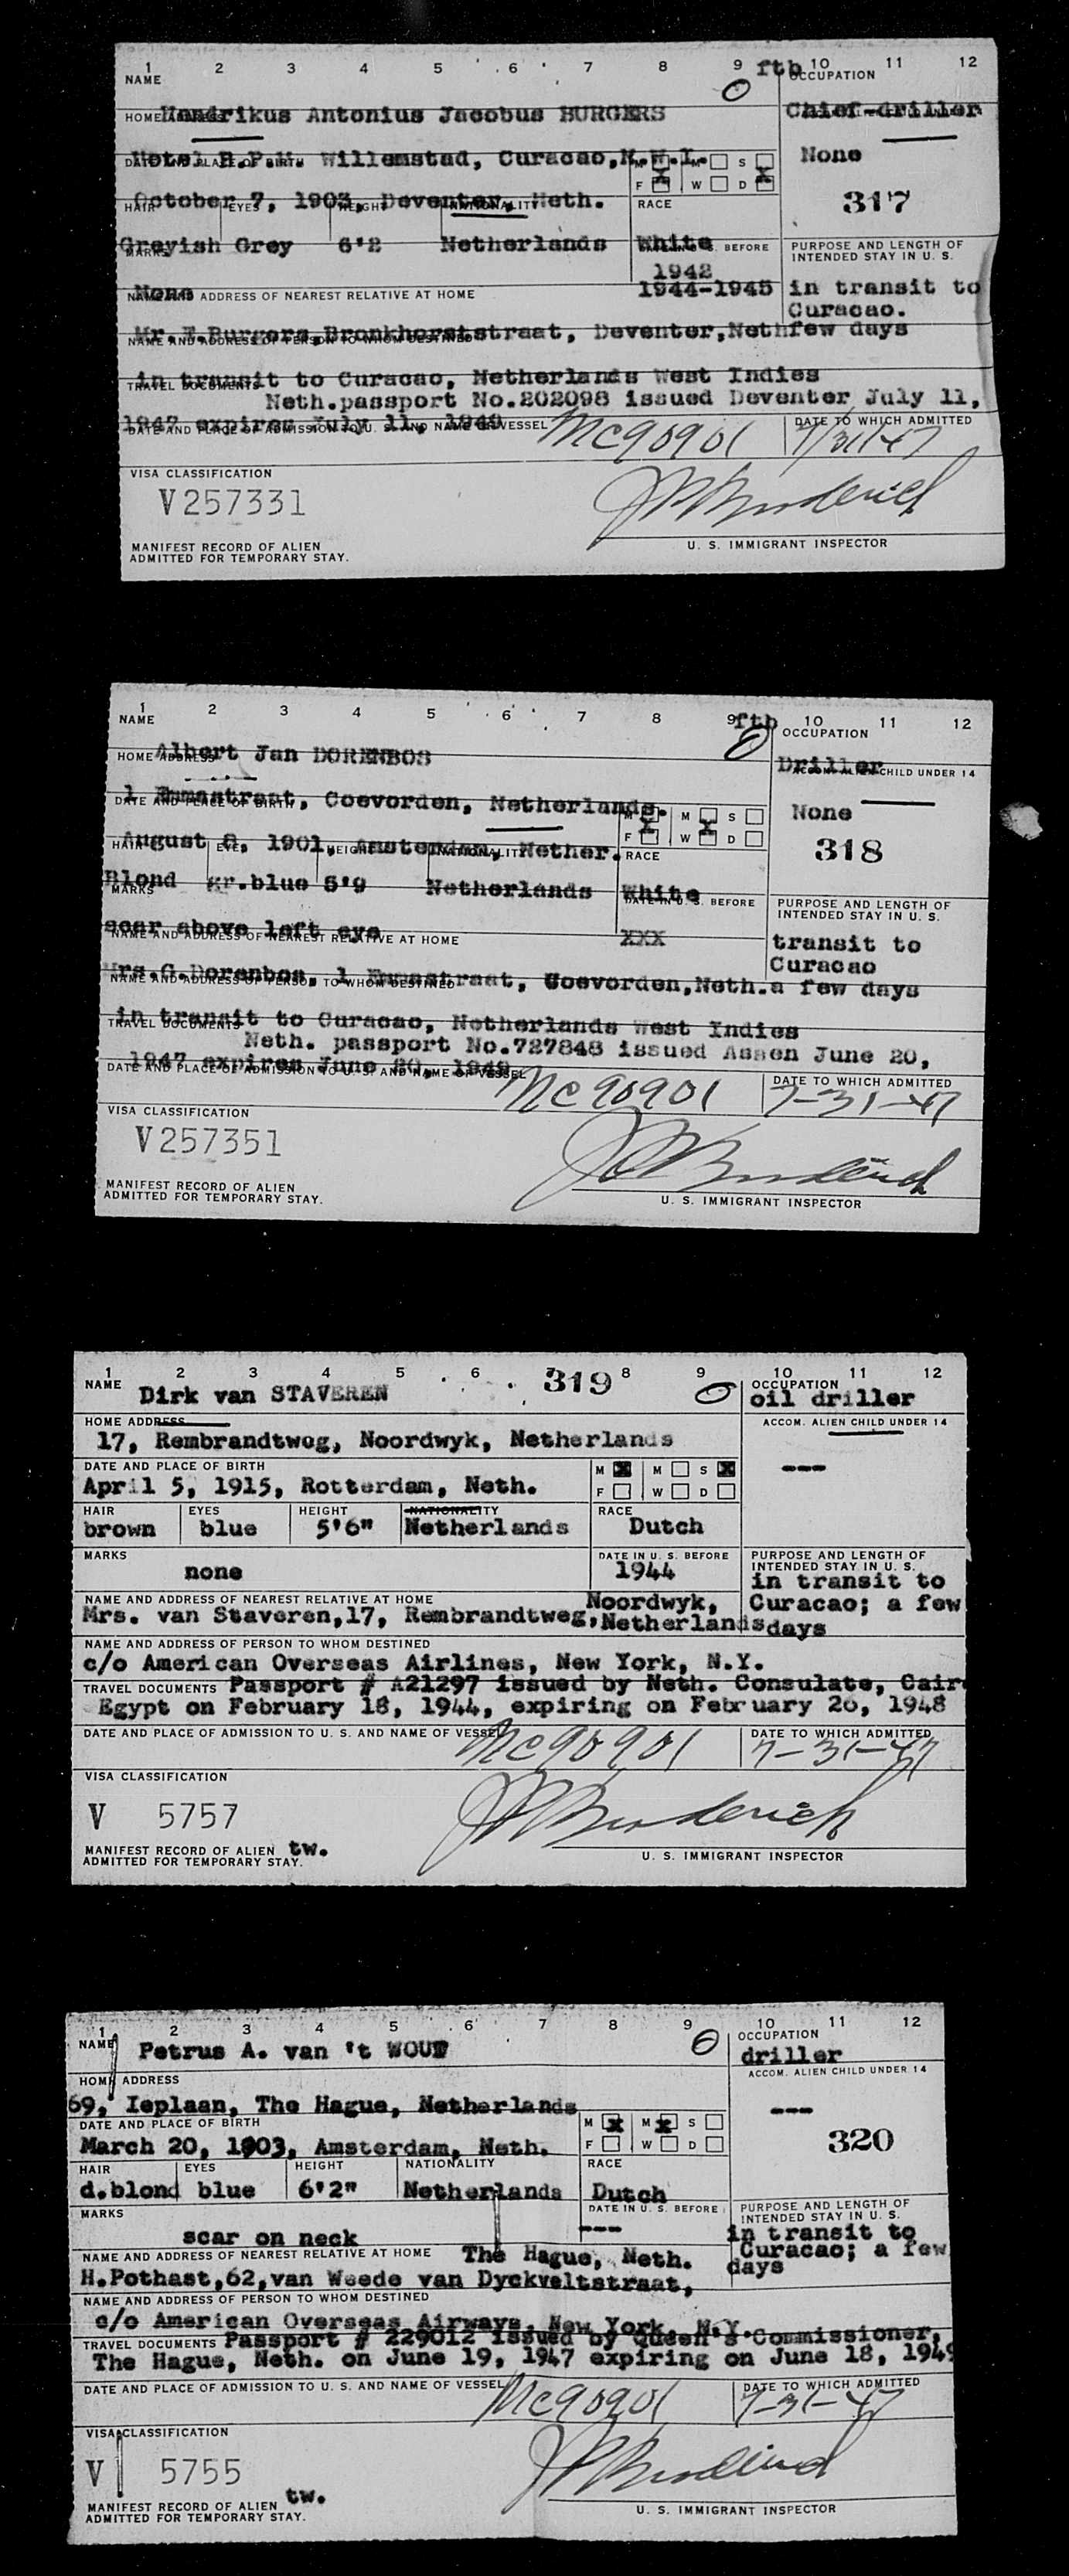 1 2 3 4 5 6 7 8 9 10 11 12
ftb
NAME OCCUPATION
Hendrikus Antonius Jacobus BURGERS Chief-driller
HOME ADDRESS
Hotel B.P.M. Willemstad, Curacao, N.W.I. None
DATE AND PLACE OF BIRTH M M S
F W D
October 7, 1903, Deventer, Neth. 317
HAIR EYES HEIGHT NATIONALITY RACE
Greyish Grey 6'2 Netherlands White
MARKS DATE IN U. S. BEFORE PURPOSE AND LENGTH OF
INTENDED STAY IN U. S.
None 1942
1944-1945 in transit to
Curacao.
NAME AND ADDRESS OF NEAREST RELATIVE AT HOME
Mr. Burgers, Bronkhorststraat, Deventer, Neth few days
NAME AND ADDRESS OF PERSON TO WHOM DESTINED
in transit to Curacao, Netherlands West Indies
TRAVEL DOCUMENTS
Neth. passport No. 202098 issued Deventer July 11,
1947 expires July 11, 1949
DATE AND PLACE OF ADMISSION TO U. S. AND NAME OF VESSEL NC90901 DATE TO WHICH ADMITTED
7/31/47
VISA CLASSIFICATION
V257331
MANIFEST RECORD OF ALIEN
ADMITTED FOR TEMPORARY STAY. U. S. IMMIGRANT INSPECTOR
1 2 3 4 5 6 7 8 9 10 11 12
ftb
NAME OCCUPATION
Albert Jan DORENBOS Driller
HOME ADDRESS ACCOM. ALIEN CHILD UNDER 14
1 Emmastraat, Coevorden, Netherlands. None
DATE AND PLACE OF BIRTH M M S
F W D
August 8, 1901, Amsterdam, Nether. 318
HAIR EYES HEIGHT NATIONALITY RACE
Blond gr.blue 5'9 Netherlands White
MARKS DATE IN U. S. BEFORE PURPOSE AND LENGTH OF
INTENDED STAY IN U. S.
scar above left eye XXX transit to
Curacao
NAME AND ADDRESS OF NEAREST RELATIVE AT HOME
Mrs.G.Dorenbos, 1 Emmastraat, Coevorden,Neth. a few days
NAME AND ADDRESS OF PERSON TO WHOM DESTINED
in transit to Curacao, Netherlands West Indies
TRAVEL DOCUMENTS
Neth. passport No.727848 issued Assen June 20,
1947 expires June 20, 1949
DATE AND PLACE OF ADMISSION TO U. S. AND NAME OF VESSEL NC90901 DATE TO WHICH ADMITTED
7-31-47
VISA CLASSIFICATION
V257351
MANIFEST RECORD OF ALIEN
ADMITTED FOR TEMPORARY STAY. U. S. IMMIGRANT INSPECTOR
1 2 3 4 5 6 7 8 9 10 11 12
319
NAME Dirk van STAVEREN OCCUPATION
oil driller
HOME ADDRESS ACCOM. ALIEN CHILD UNDER 14
17, Rembrandtweg, Noordwyk, Netherlands ---
DATE AND PLACE OF BIRTH M M S
April 5, 1915, Rotterdam, Neth. F W D
HAIR EYES HEIGHT NATIONALITY RACE
brown blue 5'6" Netherlands Dutch
MARKS DATE IN U. S. BEFORE PURPOSE AND LENGTH OF
INTENDED STAY IN U. S.
none 1944 in transit to
NAME AND ADDRESS OF NEAREST RELATIVE AT HOME Noordwyk, Curacao; a few
Mrs. van Staveren,17, Rembrandtweg, Netherlands days
NAME AND ADDRESS OF PERSON TO WHOM DESTINED
c/o American Overseas Airlines, New York, N.Y.
TRAVEL DOCUMENTS Passport # A21297 issued by Neth. Consulate, Cair
Egypt on February 18, 1944, expiring on February 20, 1948
DATE AND PLACE OF ADMISSION TO U. S. AND NAME OF VESSEL NC90901 DATE TO WHICH ADMITTED
7-31-47
VISA CLASSIFICATION
V 5757
MANIFEST RECORD OF ALIEN tw.
ADMITTED FOR TEMPORARY STAY. U. S. IMMIGRANT INSPECTOR
1 2 3 4 5 6 7 8 9 10 11 12
NAME Petrus A. van 't WOUT OCCUPATION
driller
HOME ADDRESS ACCOM. ALIEN CHILD UNDER 14
69, Ieplaan, The Hague, Netherlands ---
DATE AND PLACE OF BIRTH M M S
March 20, 1903, Amsterdam, Neth. F W D 320
HAIR EYES HEIGHT NATIONALITY RACE
d.blond blue 6'2" Netherlands Dutch
MARKS DATE IN U. S. BEFORE PURPOSE AND LENGTH OF
INTENDED STAY IN U. S.
scar on neck --- in transit to
NAME AND ADDRESS OF NEAREST RELATIVE AT HOME The Hague, Neth. Curacao; a few
H.Pothast,62,van Weede van Dyckveltstraat, days
NAME AND ADDRESS OF PERSON TO WHOM DESTINED
c/o American Overseas Airways, New York, N.Y.
TRAVEL DOCUMENTS Passport # 229012 issued by Queen's Commissioner,
The Hague, Neth. on June 19, 1947 expiring on June 18, 1949
DATE AND PLACE OF ADMISSION TO U. S. AND NAME OF VESSEL NC90901 DATE TO WHICH ADMITTED
7-31-47
VISA CLASSIFICATION
V 5755
MANIFEST RECORD OF ALIEN tw.
ADMITTED FOR TEMPORARY STAY. U. S. IMMIGRANT INSPECTOR